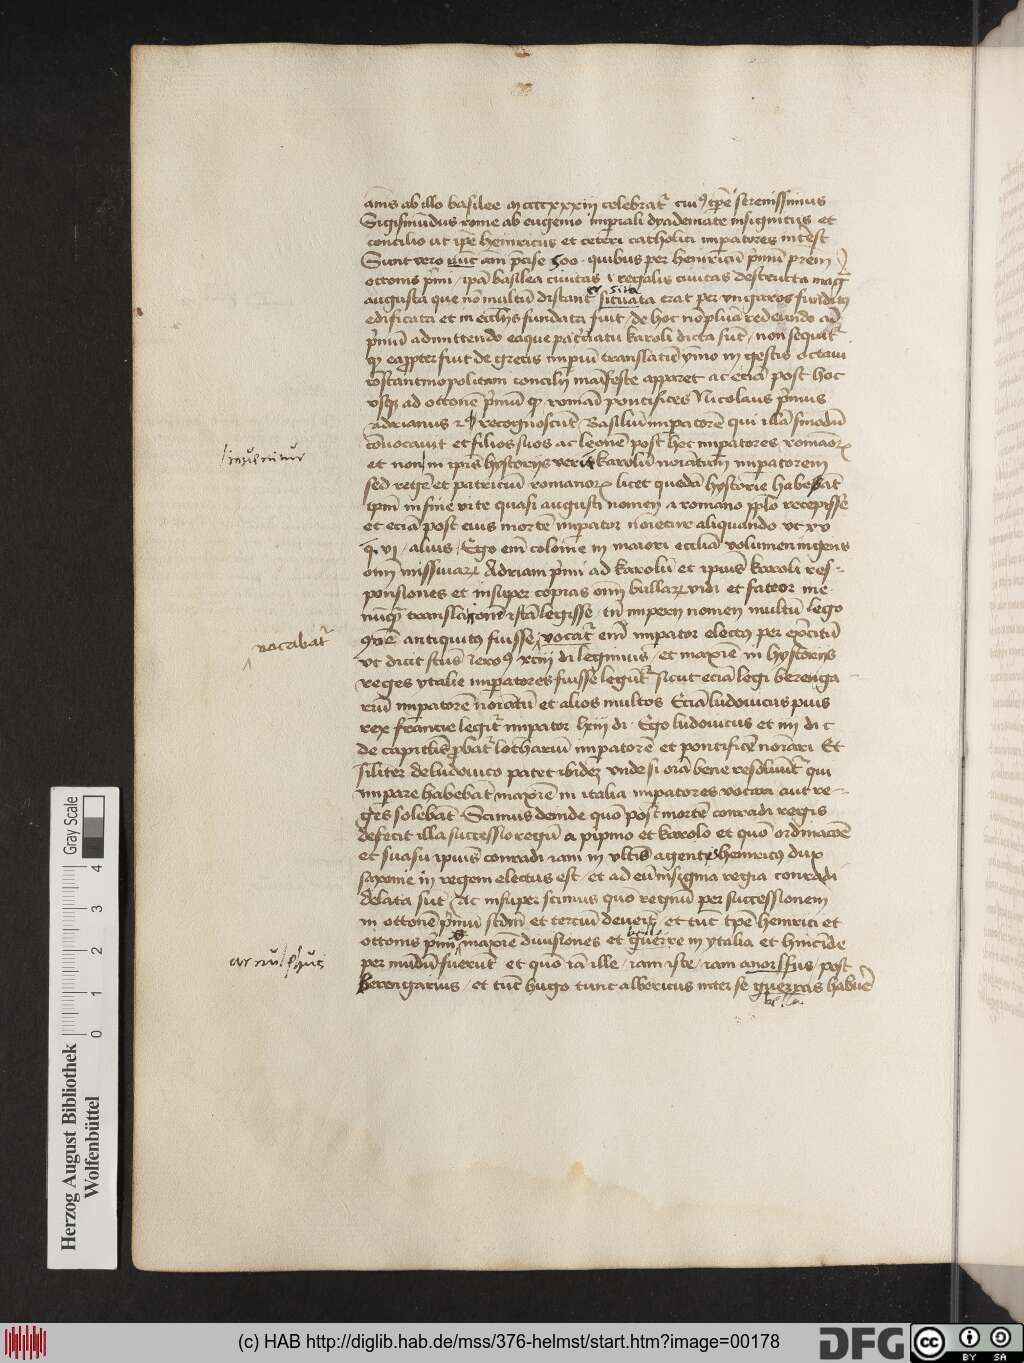 añis ab illo basilee mccccxxxiii celebrat᷑ cuiꝰ tp̄e serenissimus
Sigismūdus rome ab eugenio imꝑiali dyademate insignitus et
concilio ut ip̄e heinricus et ceteri catholici impatores int̄est
Sunt vero nūc añi p̄cise 500 quibus per heinricū p̄mū p̄rem
ottonis p̄mi / ip̄a basilea ciuitas regalis ciuitas destructa
er sita
augusta que nō multū distant᷑ situata erat per vngaros fundit9
edificata et in eccl̄ijs fundata fuit / de hoc
p̄mū admittendo eaque patriciatu karoli dicta sūt / non sequit᷑
ꝙ eapropter fuit de grecis impiū translatū ymo in gestis octaui
9stantinopolitani concilij māifeste apparet ac eciā post hoc
vsqꝫ ad ottonē p̄mū ꝙ romāi pontifices Nicolaus p̄mus
Adrianus recognoscūt / Basiliū impatorē qui illā sinodū
cōuocauit et filios suos ac leonē post hec impatores romāoꝝ
et non in ipīs hystorijs karolū noīatum impatorem
sed regē et patriciū romanoꝝ licet quedā hystorie habeāt
ip̄m in fine vite quasi augusti nomen a romano pp̄lo recepisse
et eciā post eius mortē impator noīetur aliquando vt xv
q. vj / alius / Ego em̄ colonie in maiori eccl̄ia volumen ingens
om̄i missiuaꝝ Adriani p̄mi ad karolū et ip̄ius karoli res-
ponsiones et insuper copias om̄i bullaꝝ vidi et fateor me
nūqͣ translacionē istā legisse / tn̄ imperij nomen multū lego
9̄e antiquitus fuisse / vocat᷑ em̄ impator electꝰ per exc̄itū
vt dicit sc̄tus Jeroꝰ xciij di legimus / et maxīe in hystorijs
reges ytalie impatores fuisse legūt᷑ sicut eciā legi berenga
riū impatorē noīatū et alios multos Eciā ludouicus pius
rex francie legit᷑ impator lxiij di. Ego ludouicus et iiij di c
de capitlis ꝓbat᷑ lothariū impatorē et pontificē noīari Et
siliter de ludouico patet ibidꝫ vnde si oīa bene resoluūt᷑ qui
impare habebāt maxīe in italia impatores vocari aut re-
ges solebāt Scimus deinde quō post mortē conradi regis
defecit illa successio regū a pipino et karolo et quō ordinacōe
et suasu ipius conradi iam in vltīs agentis heinricꝰ dux
saxonie in regem electus est / et ad eū insignia regia conradi
delata sūt / Ac insuper scimus quō regnū per successionem
in ottonē p̄mū sc̄dm et terciū deuenit / et tūc tp̄e heinrici et
belli
ottonis p̄mi maxīe diuisiones et guerre in ytalia et hincīde
per mūdū fuerūt et quō iā ille / iam iste / iam anorffus / post
Berengarius / et tūc hugo tunc albericus inter se guerras habuēr̄
bella
vocabat᷑
arnulphus
Herzog August Bibliothek
Wolfenbüttel
0 1 2 3 4
Gray Scale
(c) HAB http://diglib.hab.de/mss/376-helmst/start.htm?image=00178
DFG
cc BY SA